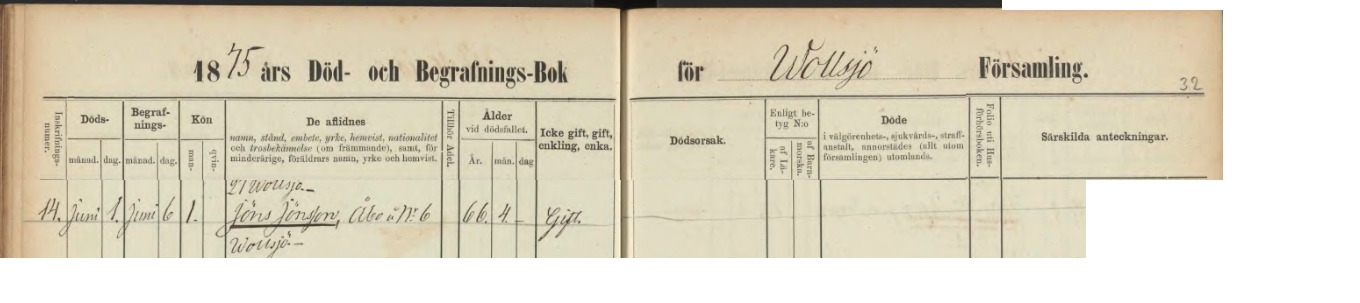 1875 års Död- och Begrafnings-Bok för Wollsjö Församling.
32
Inskrifnings-numer.
Döds-
månad. dag.
Begraf-
nings-
månad. dag.
Kön
man-
qvin-
De aflidnes
namn, stånd, embete, yrke, hemvist, nationalitet
och trosbekännelse (om främmande), samt, för
minderårige, föräldrars namn, yrke och hemvist.
Tillhör Adel.
Ålder
vid dödsfallet.
År. mån. dag
Icke gift, gift,
enkling, enka.
Dödsorsak.
Enligt be-
tyg N:o
af Lä-
kare.
af Barn-
morska.
Döde
i välgörenhets-, sjukvårds-, straff-
anstalt, annorstädes (allt utom
församlingen) utomlands.
Folio uti Hus-
förhörsboken.
Särskilda anteckningar.
21 Wollsjö.-
14. Juni 1. Juni 6 1. Jöns Jönsson, Åbo å N:o 6 66. 4. - Gift.
Wollsjö.-